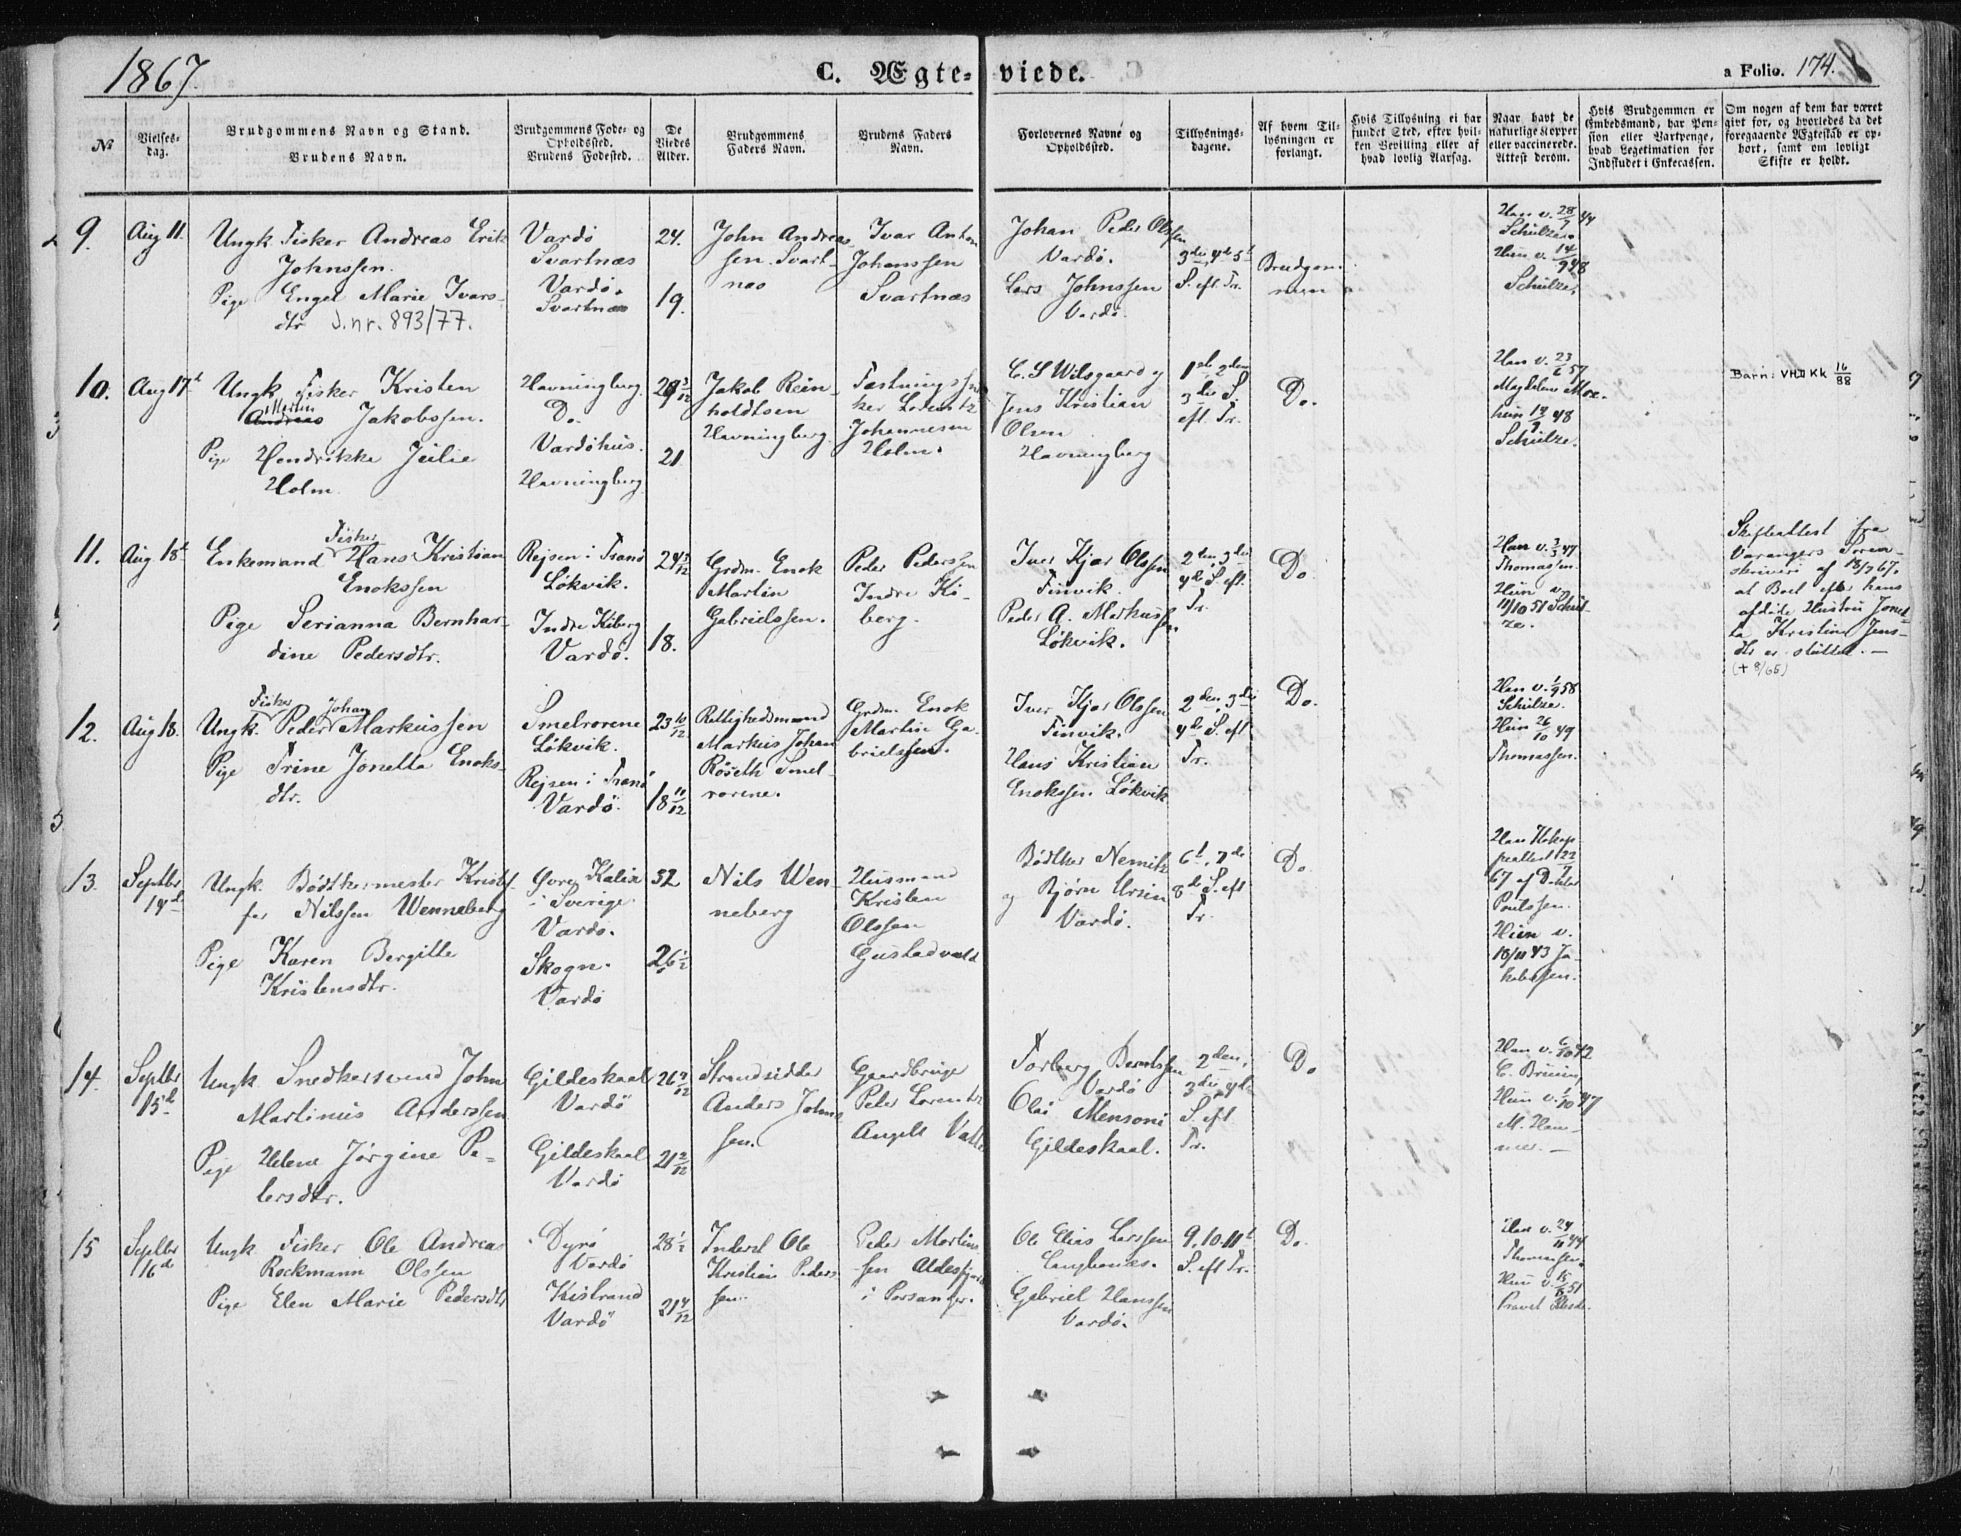 1867.
C. Ægteviede.
a Folio. 174.
No
Vielses-
dag.
Brudgommens Navn og Stand.
Brudens Navn.
Brudgommens Føde- og
Opholdssted.
Brudens Fødested.
De
Viedes
Alder.
Brudgommens
Faders Navn.
Brudens Faders
Navn.
Forlovernes Navne og
Opholdssted.
Tillysnings-
dagene.
Af hvem Til-
lysningen er
forlangt.
Hvis Tillysning ei har
fundet Sted, efter hvil-
ken Bevilling eller af
hvad lovlig Aarsag.
Naar havt de
naturlige Kopper
eller vaccinerede.
Attest derom.
Hvis Brudgommen er
Embedsmand, har Pen-
sion eller Vartpenge,
hvad Legetimation for
Indskudet i Enkecassen.
Om nogen af dem har været
givt før, og hvorledes da det
foregaaende Ægteskab er op-
hørt, samt om lovligt
Skifte er holdt.
9.
Aug 11.
Ungk. Fisker Andreas Erik
Johnssen.
Pige Engel Marie Ivars-
dtr J.nr. 893/77.
Vardö
Svartnæs
Vardö.
Svartnæs
24.
19.
John Andreas
sen. Svart-
næs
Ivar Anton
Johanssen
Svartnæs
Johan Peder Olssen
Vardö.
Lars Johnssen
Vardö.
3die, 4de 5te
S. eft. Tr.
Brudgom-
men
Han v. 28/9 44
Schulze.
Hun v. 14/9 48
Schulze.
10.
Aug 17de
Ungk Fisker Kristen
Martin
Andreas Jakobssen.
Pige Hendrikke Julie
Holm.
Havningberg.
Do.
Vardöhus.
Havningberg.
21
Jakob Rein-
holdtsen
Havningberg.
Johannesen
Holm.
C. S Wilsgaard og
Jens Kristian
Olsen
Havningberg
1ste 2den
3die S.
eft. Tr.
Do.
Han v. 23/6 57
Magdalene Moe.
hun
Schulze.
Barn: VHD Kk 16/88
11.
Aug 18de
Fisker
Enkemand Hans Kristian
Enokssen
Pige Serianna Bernhar-
dine Pedersdtr.
Rejsen i Tranö
Lökvik.
Indre Kiberg
Vardö.
18.
Grdm. Enok
Martin
Gabrielssen.
Peder Pederssen
Indre Ki-
berg.
Iver Kjær Olssen
Finvik.
Peder A. Markussen
Lökvik.
2den, 3die
4de S. eft.
Tr.
Do
Thomassen.
Hun v.
11/10 51 Schul-
ze.
Skifteattest fra
Varangers Soren-
skriveri af 18/7 67.
at Boet efter hans
afdøde Hustru Jonet-
ta Kristine Jens-
dtr er sluttet. —
(+ 8/65)
12.
Aug 18.
Fisker Johan
Ungk. Peder Markussen
Pige Trine Jonetta Enoks-
dtr.
Smelrorene
Lökvik.
Rejsen i Tranö
Vardö.
23 10/12
18 11/12
Rettighedsmand
Markus Johan
Röseth Smel-
rorene.
Grdm. Enok
Martin Ga-
brielssen.
Iver Kjær Olssen
Finvik.
Hans Kristian
Enokssen Lökvik
2den, 3die
4de S. eft
Tr.
Do.
Han v. 1/9 58
Schulze.
Hun 26/10 49
Thomassen.
13.
Septbr
14de
Ungk. Bödkermester Kristof-
fer Nilssen Wenneberg
Pige Karen Bergitte
Kristensdtr.
Övre Kalix
i Sverige.
Vardö.
Skogn.
Vardö
32
26 1/2
Nils Wen-
neberg
Husmand
Kristen
Olssen
Gustadvald
Bödker Nemitz
og Bjørn Ursin
Vardö.
6te, 7de
8de S. eft
Tr.
Do
67 af Doktor
Poulssen.
Hun v.
18/11 43 Ja-
kobssen.
14.
Septbr
15de
Ungk. Snedkersvend John
Martinus Anderssen
Pige Helene Jørgine Pe-
tersdtr.
Gildeskaal
Vardö
Gildeskaal
Vardö
21 2/12
Strandsidder
Anders Johns-
sen.
Gaardbruger
Peter Lorentz
Angell
Torberg Berntssen
Vardö
Olai Mensoni
Gildeskaal.
2den,
3die, 4de
S. eft.
Tr.
Do
Han v. 6/10 42
Hun v. 1/10 47
15
Septbr
16de
Ungk Fisker Ole Andreas
Rockmann Olssen
Pige Elen Marie Pedersdtr
Dyrö
Vardö
Kistrand
Vardö
28 1/2
21 4/12
Inderst Ole
Kristian Peders-
sen
Peder Martins-
sen
i Porsanger.
Ole Elias Larssen
Gabriel Hanssen
Vardö.
9. 10. 11te
S. eft Tr.
Do.
Thomassen.